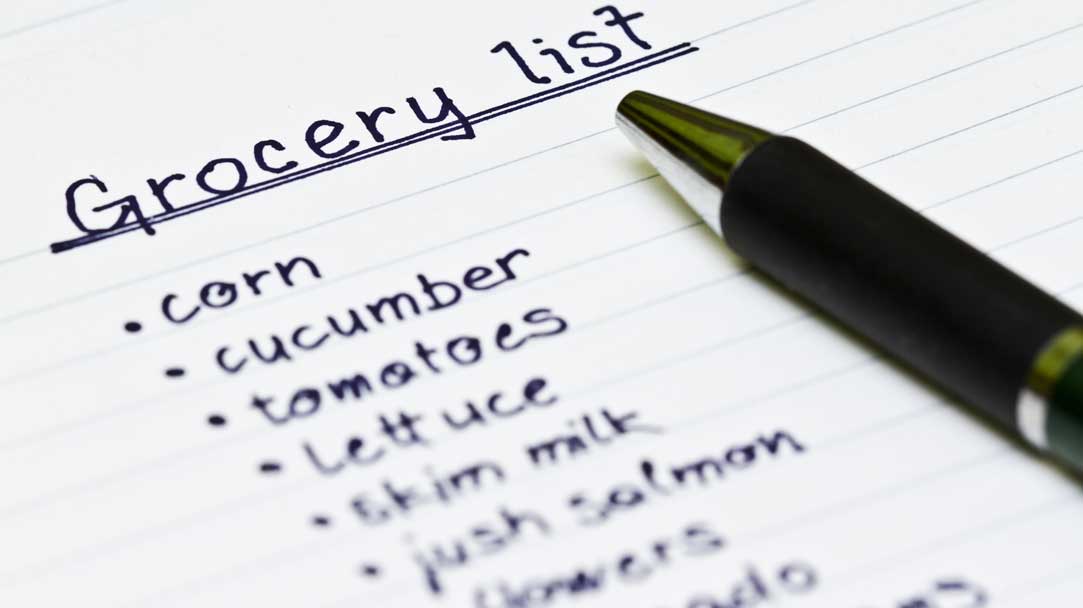 Grocery list
• corn
• cucumber
• tomatoes
• lettuce
• skim milk
• jush salmon
flowers